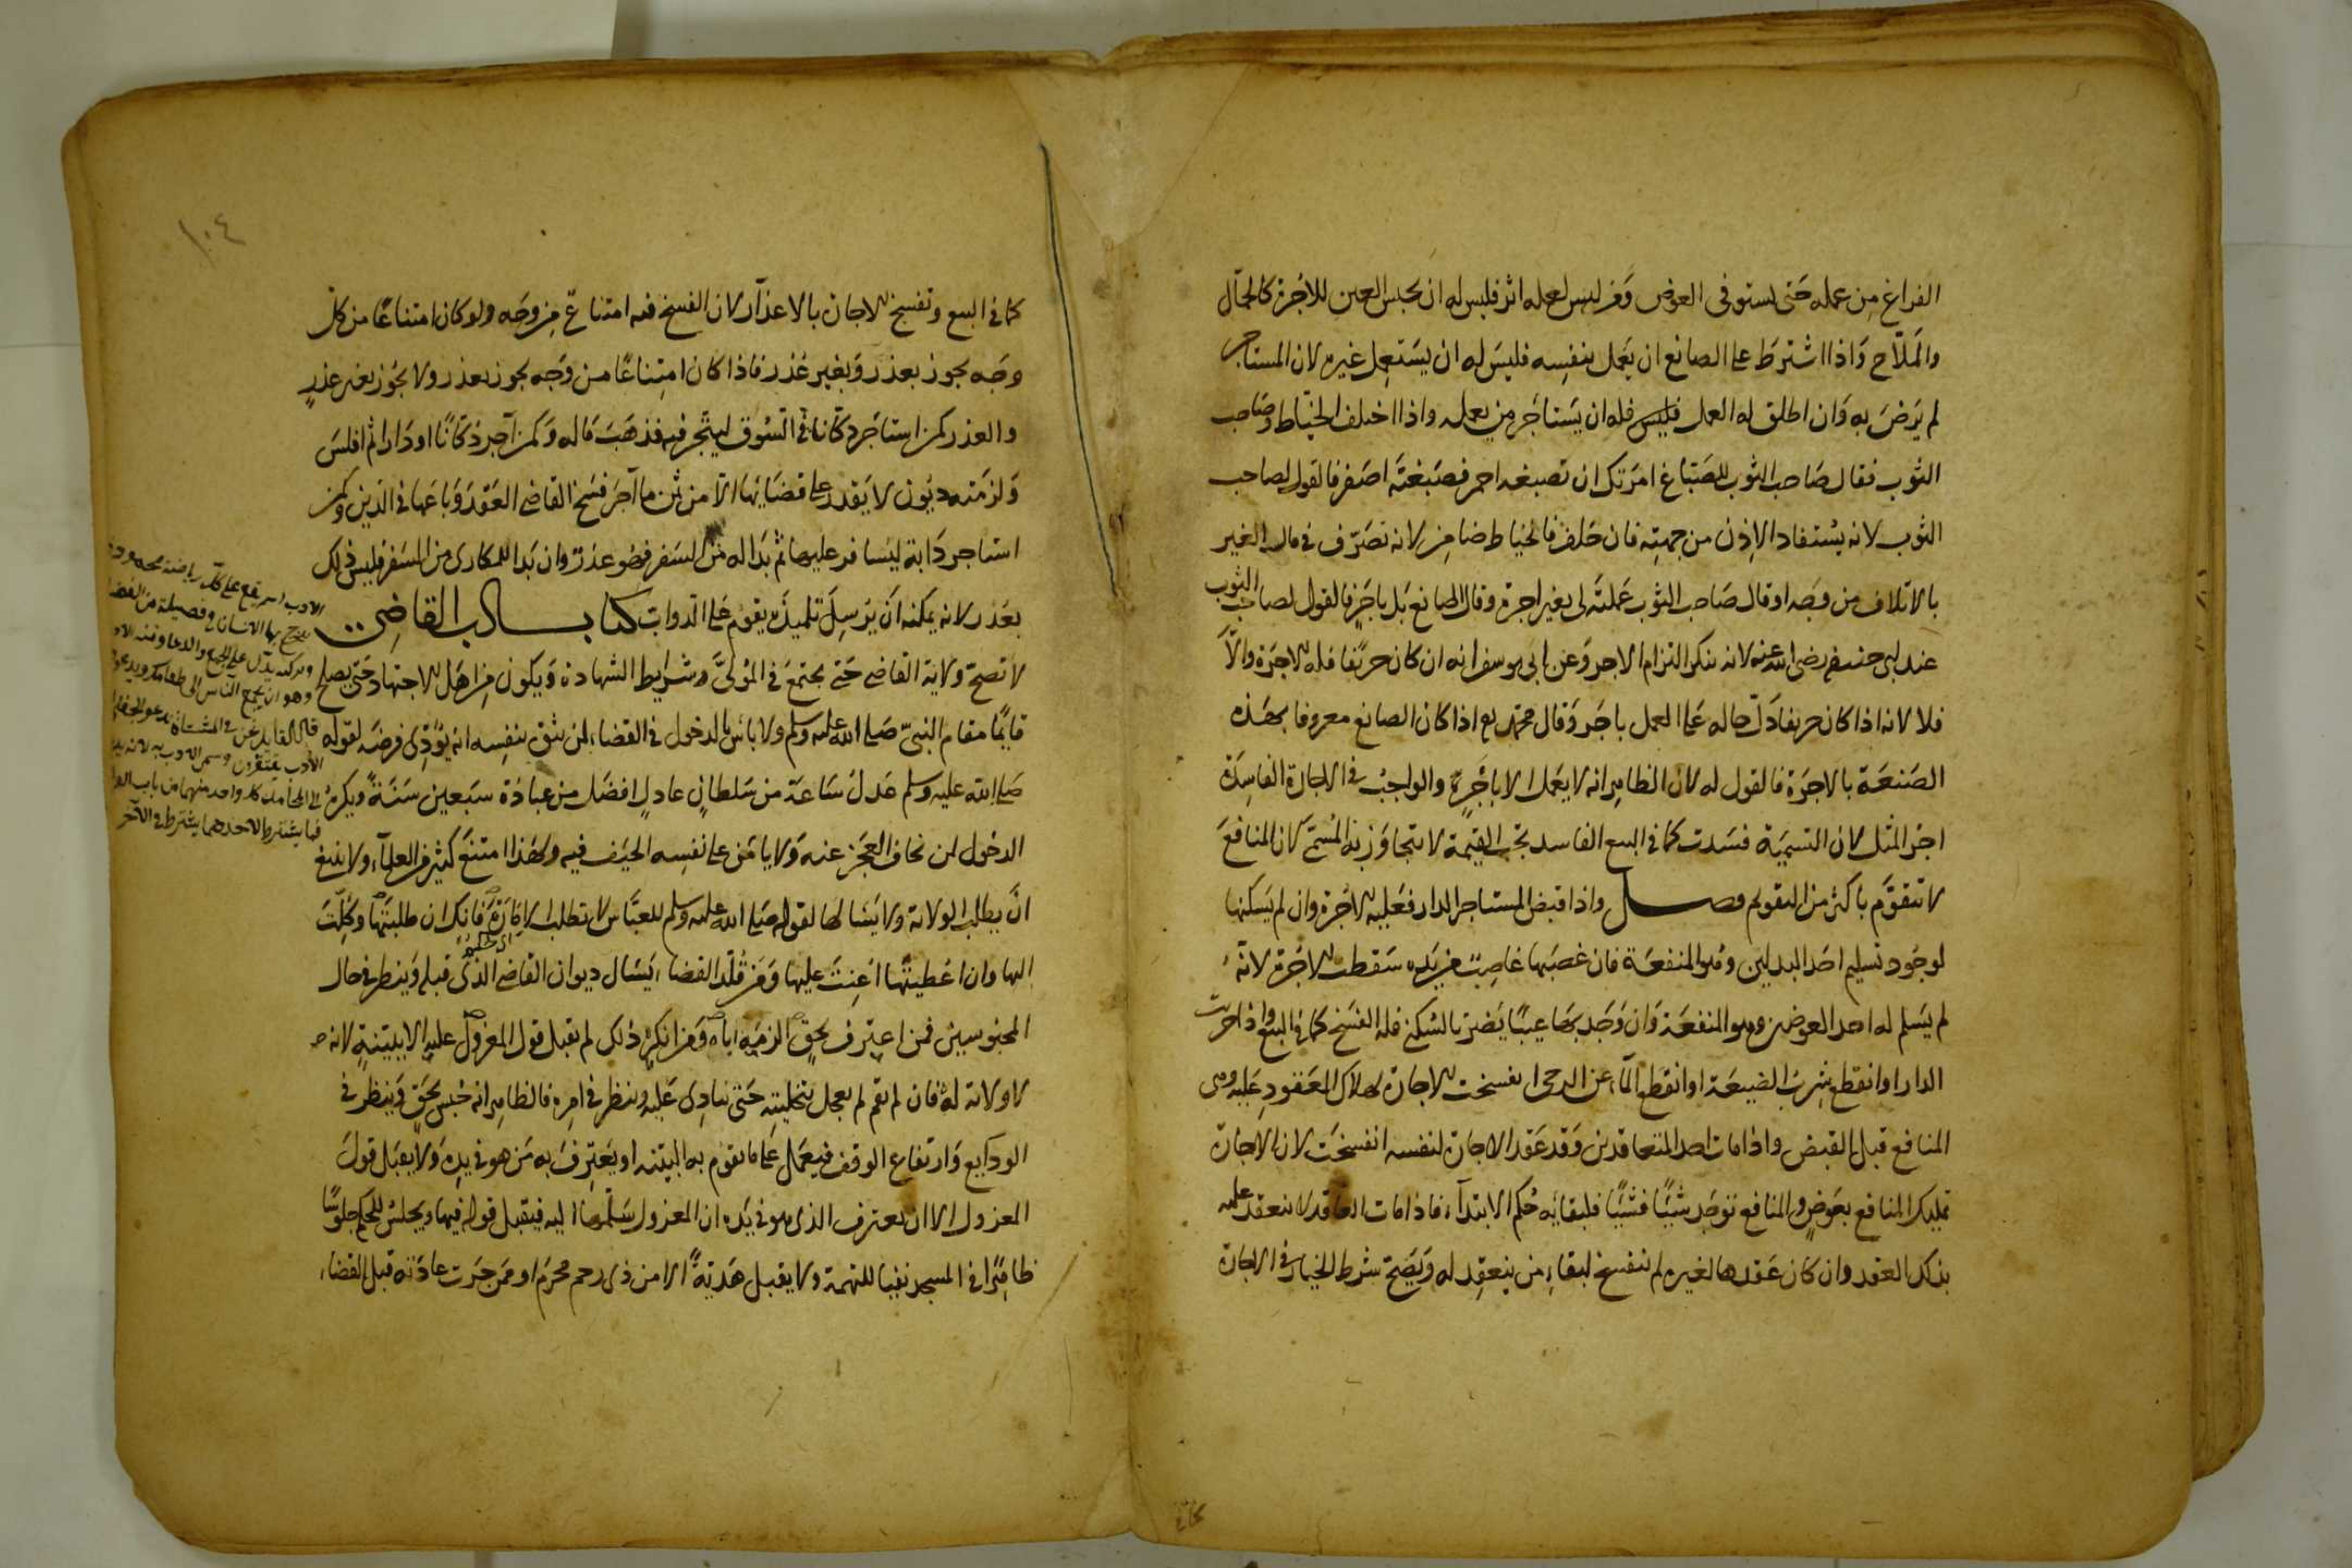 الفراغ من عمله حتى يستوفى العوض ومن ليس لعمله اثر فليس له ان يحبس العين للاجرة كالحمّال
والملّاح واذا اشترط على الصانع ان يعمل بنفسه فليس له ان يستعمل غيره لان المستاجر
لم يرض به وان اطلق له العمل فليس فله ان يستاجر من يعمله واذا اختلف الخيّاط وصاحب
الثوب فقال صاحب الثوب للصبّاغ امرتك ان تصبغه احمر فصبغته اصفر فالقول لصاحب
الثوب لانه يستفاد الاذن من جهته فان حلف فالخياط ضامن لانه تصرّف فى مال الغير
بالاتلاف من وجه او قال صاحب الثوب عملته لى بغير اجرة وقال الصانع بل باجر فالقول لصاحب الثوب
عند ابى حنيفه رضى الله عنه لانه ينكر التزام الاجر وعن ابى يوسف انه ان كان حريفا فله الاجرة والّا
فلا لانه اذا كان حريفا دلّ حاله على العمل باجر وقال محمد رح اذا كان الصانع معروفا بهذه
الصنعة بالاجرة فالقول له لان الظاهر انه لا يعمل الا باجرة والواجب فى الاجارة الفاسدة
اجر المثل لان التسمية فسدت كما فى البيع الفاسد تجب القيمة لا يتجاوز به المسمّى لان المنافع
لا تتقوّم باكثر من التقويم فصل واذا قبض المستاجر الدار فعليه الاجرة وان لم يسكنها
لوجود تسليم احد البدلين وهو المنفعة فان غصبها غاصب من يده سقطت الاجرة لانه
لم يسلم له احد العوضين وهو المنفعة وان وجد بها عيبا يضرّ بالسكنى فله الفسخ كما فى البيع واذا خربت
الدار او انقطع شرب الضيعة او انقطع الماء عن الرحى انفسخت الاجارة لهلاك المعقود عليه وهى
المنافع قبل القبض واذا مات احد المتعاقدين وقد عقد الاجارة لنفسه انفسخت لان الاجارة
تمليك المنافع بعوض والمنافع توجد شيئًا فشيئًا فلبقائه حكم الابتداء فاذا مات العاقد لا ينعقد عليه
بذلك العقد وان كان عقدها لغيره لم تنفسخ لبقاء من ينعقد له ويصحّ شرط الخيار فى الاجارة
كما فى
١٠٤
كما فى البيع وتفسخ الاجارة بالاعذار لان الفسخ فيه امتناع من وجه ولو كان امتناعًا من كل
وجه يجوز بعذر وبغير عذر فاذا كان امتناعًا من وجه يجوز بعذر ولا يجوز بغير عذرٍ
والعذر كمن استاجر دكّانا فى السوق ليتّجر فيه فذهب ماله وكمن آجر دكانًا او دارا ثم افلس
ولزمته ديون لا يقدر على قضايها الّا من ثمن ما آجر فسخ القاضى العقد وباعها فى الدين وكمن
استاجر دابة ليسافر عليها ثم بدا له من السفر فهو عذر وان بدا للمكارى من السفر فليس ذلك
بعذر لانه يمكنه ان يرسل تلميذه يقوم على الدواب كتاب ادب القاضى
لا تصح ولاية القاضى حتى يجتمع فى المولّى شرايط الشهادة ويكون من اهل الاجتهاد حتى يصلح
قايمًا مقام النبىّ صلى الله عليه وسلم ولا بأس بالدخول فى القضاء لمن يثق بنفسه انه يؤدّى فرضه لقوله
صلى الله عليه وسلم عدل ساعة من سلطانٍ عادلٍ افضل من عبادة سبعين سنةً ويكره
الدخول لمن يخاف العجز عنه ولا يأمن على نفسه الحيف فيه ولهذا امتنع كثير من العلمآء ولا ينبغى
انّ يطلب الولاية ولا يسالها لقوله صلى الله عليه وسلم للعبّاس لا تطلب الامارة فانك ان طلبتها وكلت
اليها وان اعطيتها اعنت عليها ومن قلّد القضاء يسال ديوان القاضى الذى قبله وينظر فى حال
المحبوسين فمن اعترف بحق الزمه اياه ومن انكر ذلك لم يقبل قول المعزول عليه الا ببيّنةٍ لانه
لا ولاية له فان لم تقم لم يعجل بتخليته حتى ينادى عليه وينظر فى امره فالظاهر انه حبس بحق وينظر فى
الودايع وارتفاع الوقف فيعمل على ما تقوم به البيّنه او يعترف به من هو فى يده ولا يقبل قول
المعزول الا ان يعترف الذى هو فى يده ان المعزول سلّمها اليه فيقبل قوله فيها ويجلس للحكم جلوسًا
ظاهرًا فى المسجد نفيا للتهمة ولا يقبل هديّةً الا من ذى رحم محرم او ممن جرت عادته قبل القضاء
الادب اسم يقع على كلّ رياضة محمودة
يتخرج بها الانسان فى فضيلة من الفضا
وتركيبه يدلّ على الجمع والدعا ومنه الاد
وهو ان يجمع الناس الى طعامك ويدعو
قال القايل نحن فى المشتاة ندعو الجفلى